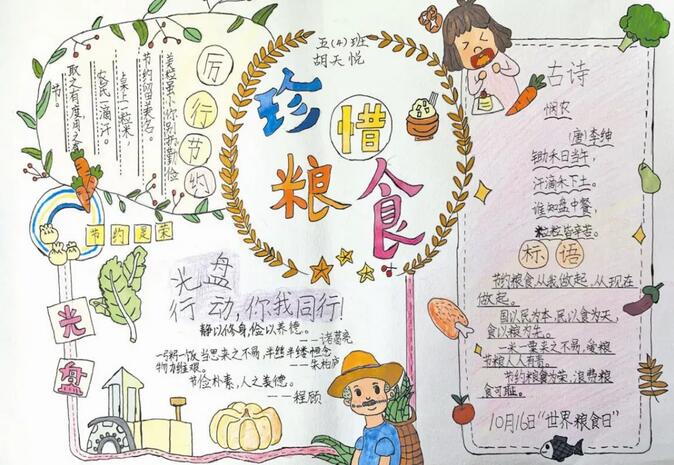 五(4)班
胡天悦
珍惜
粮食
厉行节约
粒虽小你别扔勤俭
节约留美名。
桌上一粒米,
农民一滴汗。
取之有度,用之有
节。
节约荣
光盘
光盘
行动,你我同行!
静以修身,俭以养德。
——诸葛亮
一粥一饭当思来之不易,半丝半缕恒念
物力维艰。
——朱柏庐
节俭朴素,人之美德。
——程
古诗
悯农
(唐)李绅
锄禾日当午,
汗滴禾下土。
谁知盘中餐,
粒粒皆辛苦。
标语
节约粮食从我做起,从现在
做起。
国以民为本,民以食为天,
食以粮为先。
一米一粟来之不易,爱粮
节粮人人有责。
节约粮食为荣,浪费粮
食可耻。
10月16日“世界粮食日”